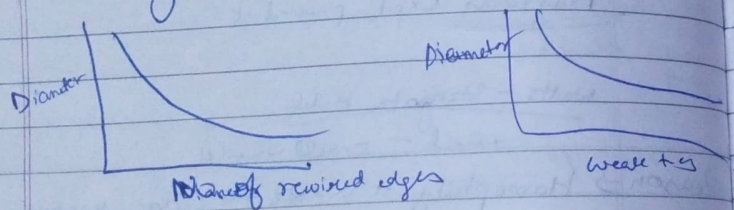 Diameter
of rewired edges
Diameter
weak